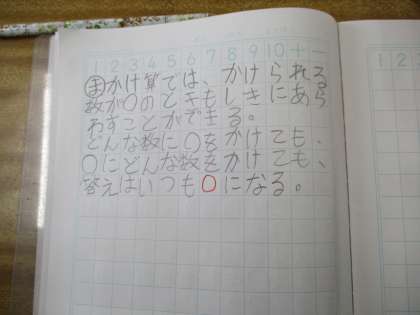 1 2 3 4 5 6 7 8 9 10 十 一
ま かけ算では、かけられる
数が0のときもしきにあら
わすことができる。
どんな数に0をかけても、
0にどんな数をかけても、
答えはいつも0になる。
1 2 3